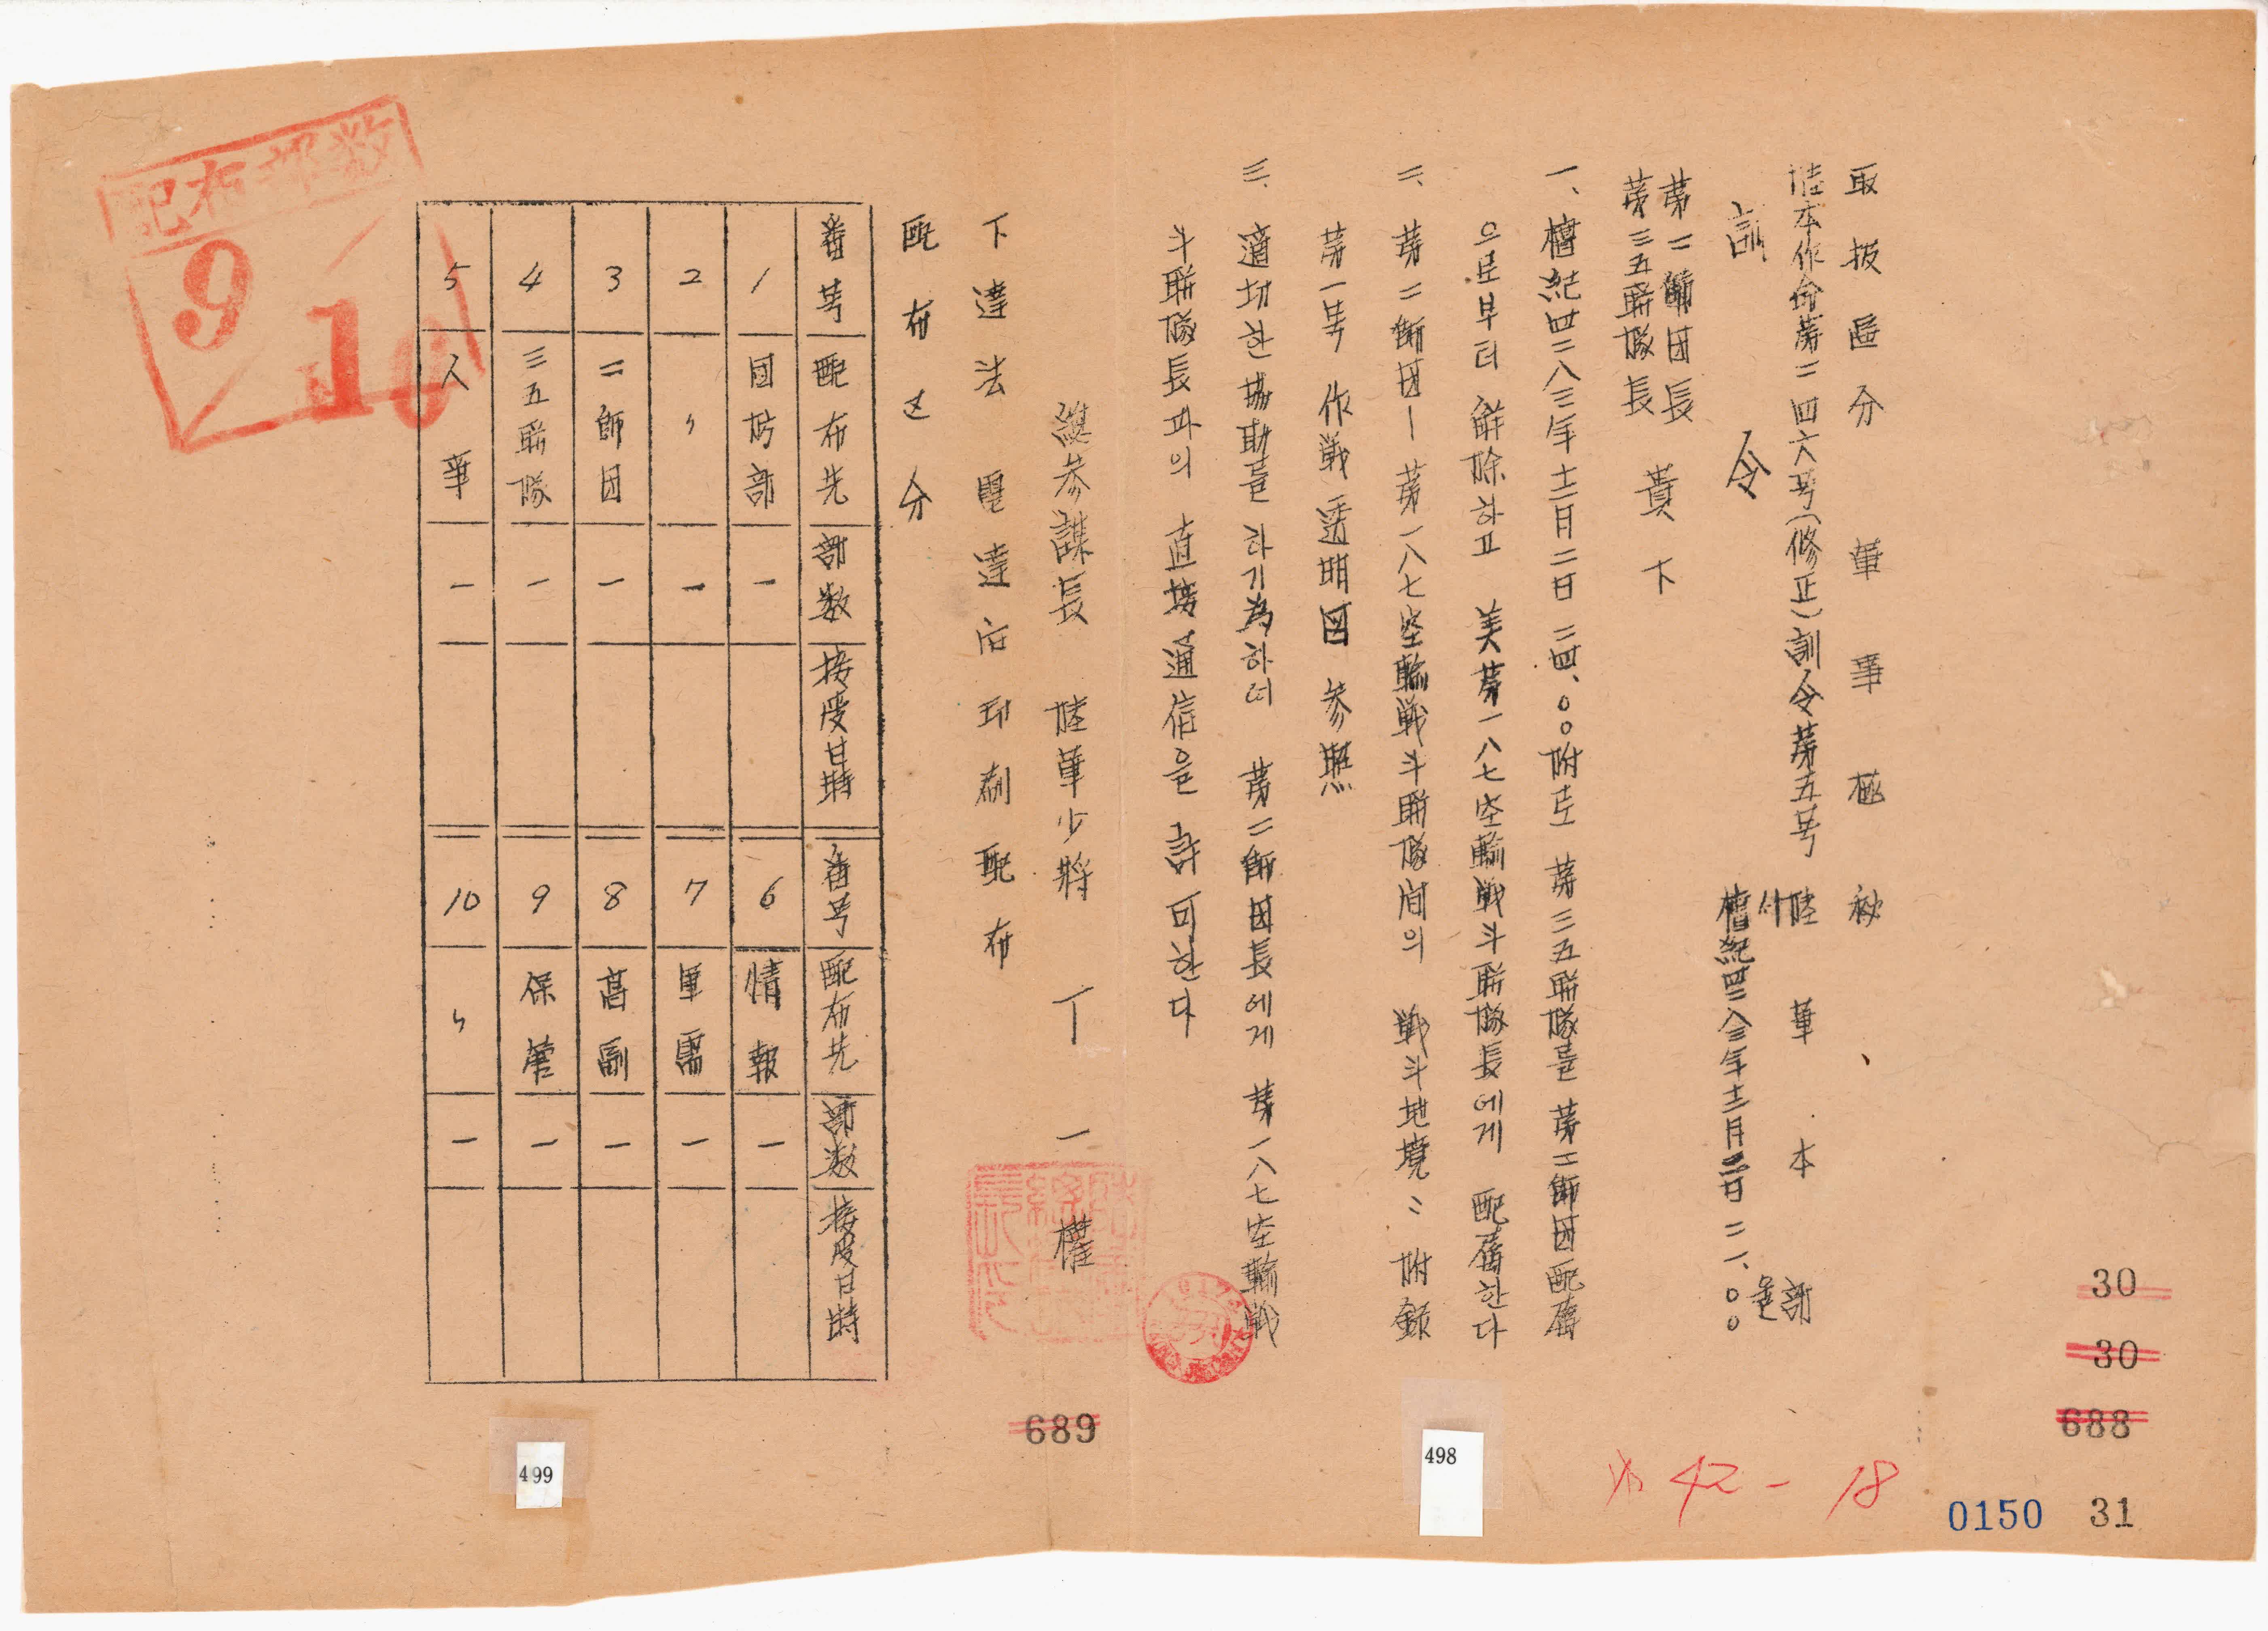 取扱區分 軍事極秘
陸本作命第二四六号(修正)訓令第五号
陸軍本部
서울
檀紀四二八三年十二月二日 二一、〇〇
訓令
第二師団長
第三五聯隊長 貴下
一、檀紀四二八三年十二月二日 二四、〇〇附로 第三五聯隊를 第二師団配屬
으로부터 解除하고 美第一八七空輸戦斗聯隊長에게 配屬한다
二、第二師団-第一八七空輸戦斗聯隊間의 戦斗地境은 附録
第一号 作戦透明図 参照
三、適切한 協助를 하기 為하여 第二師団長에게 第一八七空輸戦
斗聯隊長과의 直接通信을 許可한다
總参謀長 陸軍少將 丁一權
下達法 電達后印刷配布
配布区分
番号 配布先 部数 接受日時 番号 配布先 部数 接受日時
1 國防部 一 6 情報 一
2 〃 一 7 軍需 一
3 二師団 一 8 高副 一
4 三五聯隊 一 9 保管 一
5 人事 一 10 〃 一
配布部数
9
10
30
30
688
31
0150
42-18
498
689
499